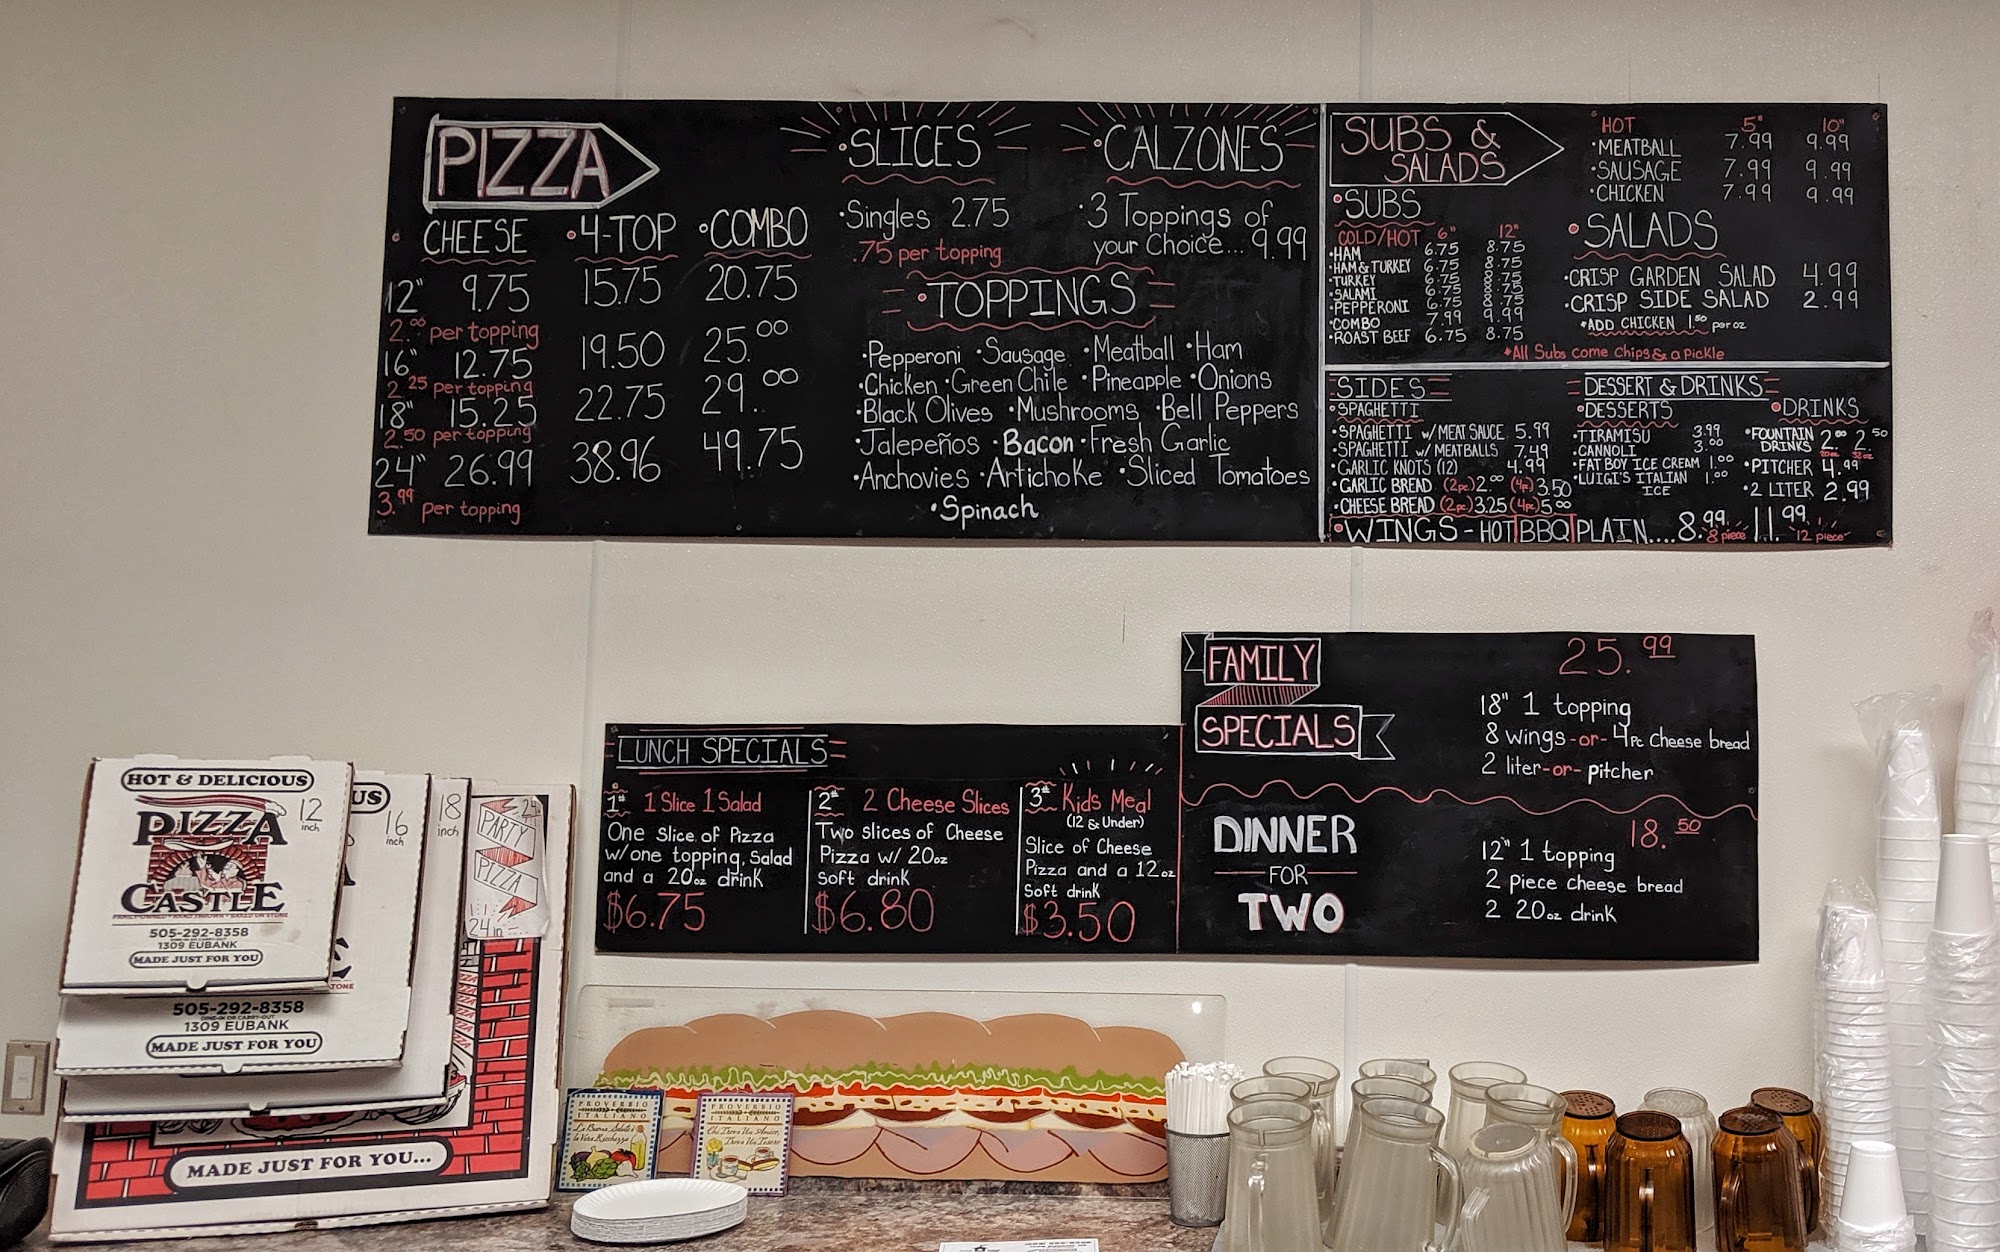 PIZZA
CHEESE •4-TOP •COMBO
12" 9.75 15.75 20.75
2.00 per topping
16" 12.75 19.50 25.00
2.25 per topping
18" 15.25 22.75 29.00
2.50 per topping
24" 26.99 38.96 49.75
3.99 per topping
•SLICES
•Singles 2.75
.75 per topping
•CALZONES
•3 Toppings of
your Choice... 9.99
•TOPPINGS
•Pepperoni •Sausage •Meatball •Ham
•Chicken •Green Chile •Pineapple •Onions
•Black Olives •Mushrooms •Bell Peppers
•Jalepeños •Bacon •Fresh Garlic
•Anchovies •Artichoke •Sliced Tomatoes
•Spinach
SUBS &
SALADS
•SUBS
COLD/HOT 6" 12"
•HAM 6.75 8.75
•HAM & TURKEY 6.75 8.75
•TURKEY 6.75 8.75
•SALAMI 6.75 8.75
•PEPPERONI 6.75 8.75
•COMBO 7.99 9.99
•ROAST BEEF 6.75 8.75
HOT 5" 10"
•MEATBALL 7.99 9.99
•SAUSAGE 7.99 9.99
•CHICKEN 7.99 9.99
•SALADS
•CRISP GARDEN SALAD 4.99
•CRISP SIDE SALAD 2.99
*ADD CHICKEN 1.50 per oz
*All Subs come Chips & a pickle
SIDES
•SPAGHETTI
•SPAGHETTI w/ MEAT SAUCE 5.99
•SPAGHETTI w/ MEATBALLS 7.49
•GARLIC KNOTS (12) 4.99
•GARLIC BREAD (2pc.) 2.00 (4pc.) 3.50
•CHEESE BREAD (2pc.) 3.25 (4pc.) 5.00
DESSERT & DRINKS
•DESSERTS
•TIRAMISU 3.99
•CANNOLI 3.00
•FAT BOY ICE CREAM 1.00
•LUIGI'S ITALIAN 1.00
ICE
•DRINKS
•FOUNTAIN 2.00 2.50
DRINKS 20oz 32oz
•PITCHER 4.99
•2 LITER 2.99
•WINGS - HOT|BBQ|PLAIN.... 8.99 8 piece 11.99 12 piece
LUNCH SPECIALS
1# 1 Slice 1 Salad
One slice of Pizza
w/one topping, Salad
and a 20oz drink
$6.75
2# 2 Cheese Slices
Two slices of Cheese
Pizza w/ 20oz
soft drink
$6.80
3# Kids Meal
(12 & Under)
Slice of Cheese
Pizza and a 12oz
soft drink
$3.50
FAMILY
SPECIALS
25.99
18" 1 topping
8 wings -or- 4pc Cheese bread
2 liter -or- pitcher
DINNER
FOR
TWO
18.50
12" 1 topping
2 piece cheese bread
2 20oz drink
HOT & DELICIOUS
12
inch
PIZZA
CASTLE
505-292-8358
DINE-IN OR CARRY-OUT
1309 EUBANK
MADE JUST FOR YOU
US
16
inch
TONE
505-292-8358
DINE-IN OR CARRY-OUT
1309 EUBANK
MADE JUST FOR YOU
18
inch
24in
PARTY
PIZZA
24in
MADE JUST FOR YOU...
PROVERBIO
ITALIANO
La Buona Salute è
la Vera Ricchezza
PROVERBIO
ITALIANO
Chi Trova Un Amico,
Trova Un Tesoro